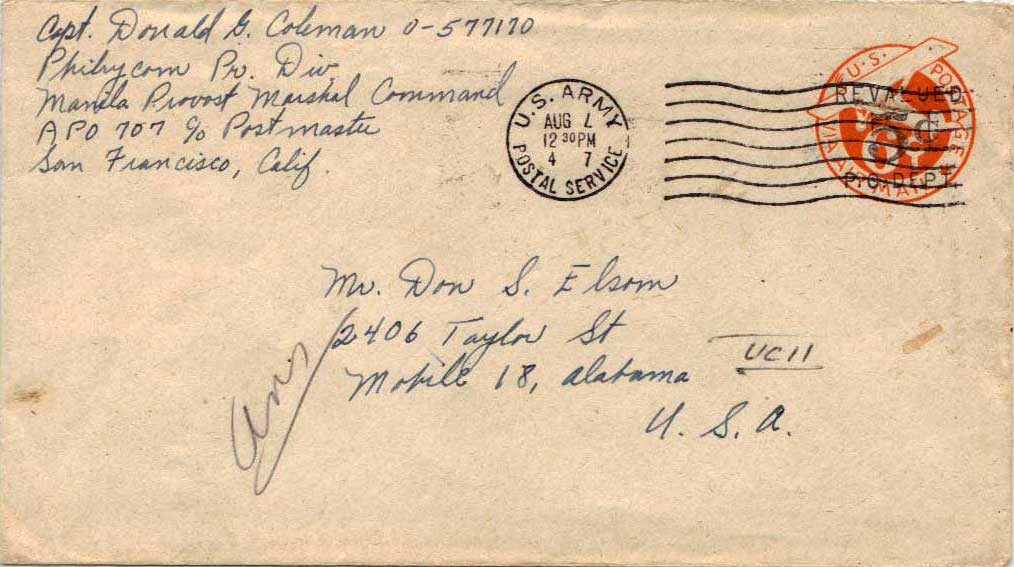 Capt. Donald G. Coleman O-577170
Philrycom Pr. Div.
Manila Provost Marshal Command
APO 707 c/o Postmaster
San Francisco, Calif.
U.S. ARMY
AUG
12 30 PM
4 7
POSTAL SERVICE
U.S. POSTAGE
REVALUED
5¢
6¢
P.O. DEPT.
VIA AIR MAIL
Mr. Don S. Elsom
2406 Taylor St
Mobile 18, Alabama
U. S. A.
UC11